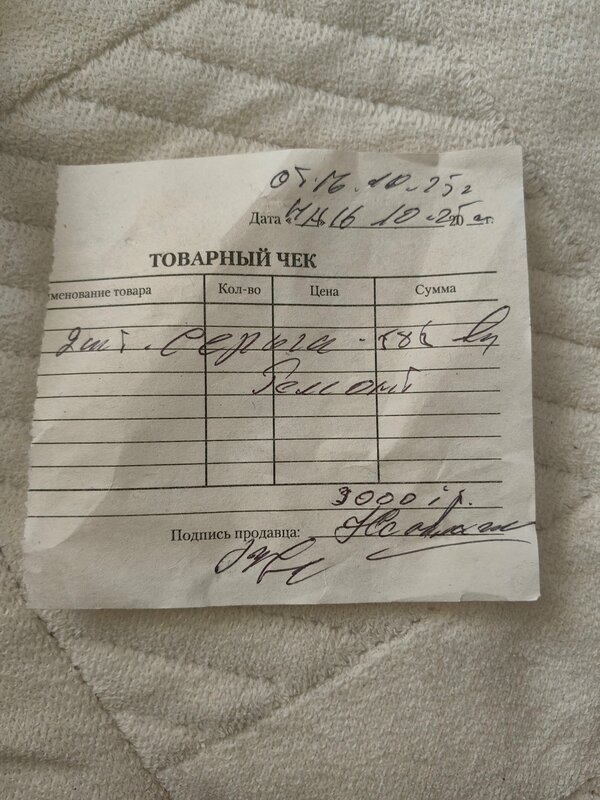 от 16.10.25г
Дата « 16 10.25 20 г.
ТОВАРНЫЙ ЧЕК
именование товара Кол-во Цена Сумма
2шт. серьга - 585
Ремонт
3000
Подпись продавца: